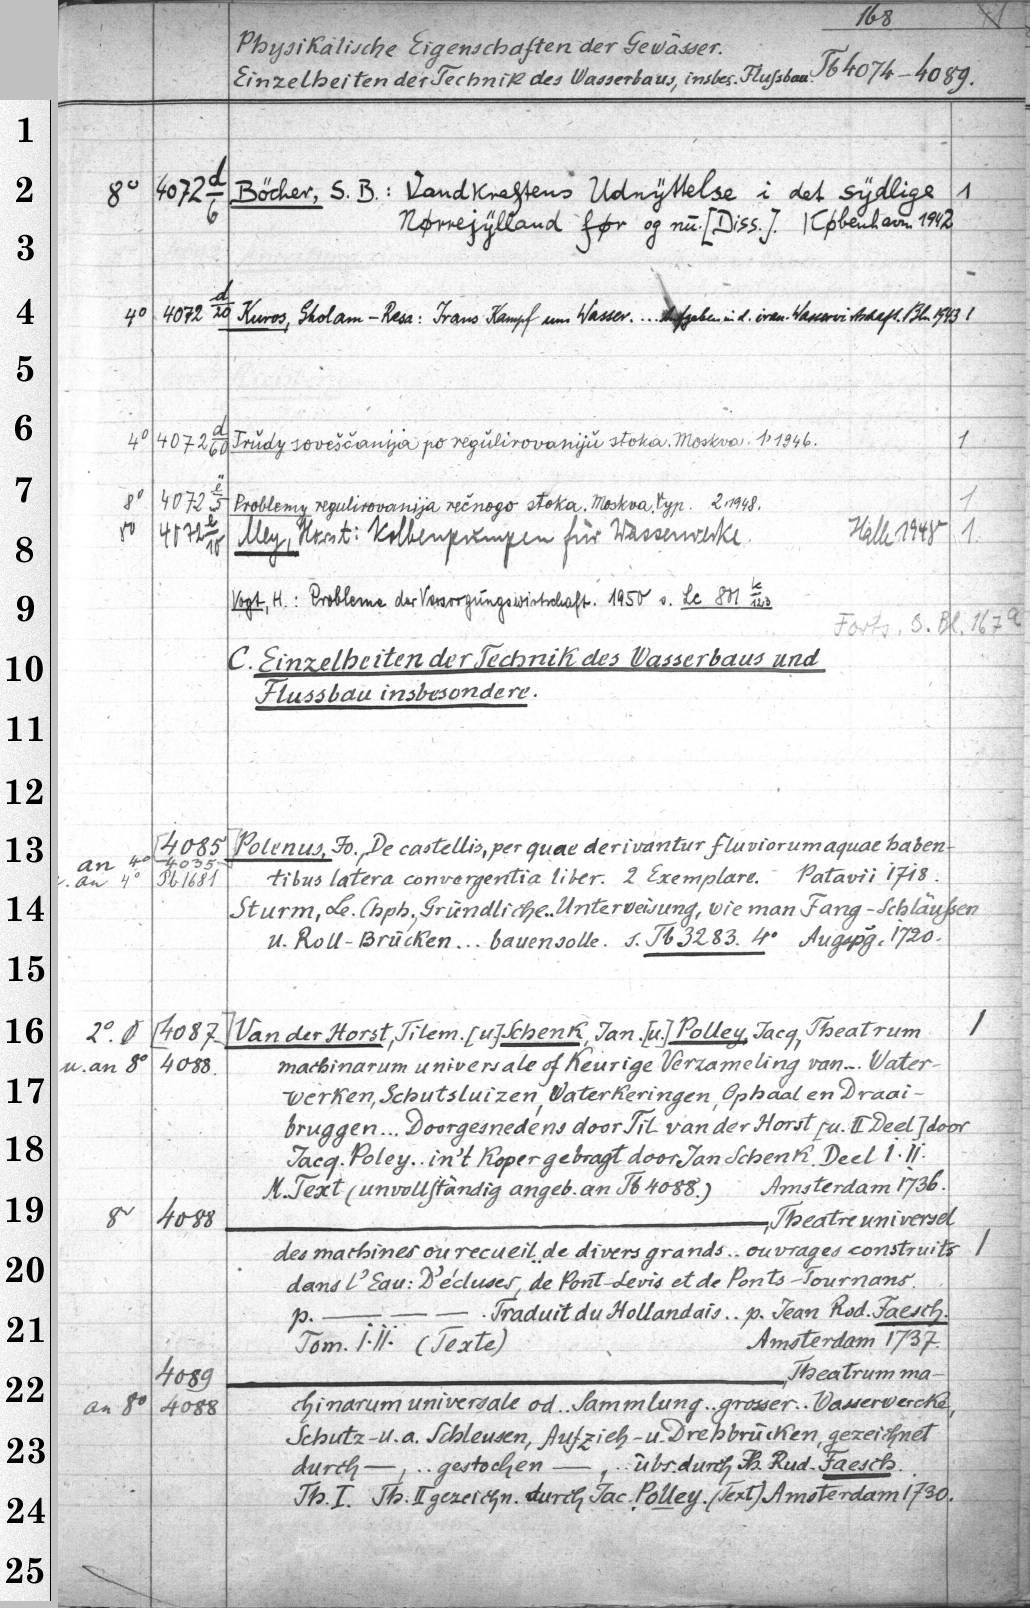 168
Physikalische Eigenschaften der Gewässer.
Einzelheiten der Technik des Wasserbaus, insbes. Flußbau. Tb 4074-4089.
1
2
8° 4072 d/6 Böcher, S. B.: Vandkraftens Udnyttelse i det sydlige 1
Nørrejylland før og nu. [Diss.]. København 1942
3
4
4° 4072 d/20 Kuros, Gholam-Resa: Irans Kampf um Wasser. ... Aufgaben in d. iran. Wasserwirtschaft. Bln 1943 1
5
6
4° 4072 d/60 Trudy soveščanija po regulirovaniju stoka. Moskva. 1, 1946. 1
7
8° 4072 e/5 Problemy regulirovanija rečnogo stoka. Moskva. Vyp. 2, 1948. 1
8° 4072 e/10 Mey, Horst: Kolbenpumpen für Wasserwerke. Halle 1948 1.
8
Vogt, H.: Probleme der Versorgungswirtschaft. 1950 s. Le 801 k/123
9
Forts. s. Bl. 167a
10
C. Einzelheiten der Technik des Wasserbaus und
Flussbau insbesondere.
11
12
13
[4085] Polenus, Jo., De castellis, per quae derivantur fluviorum aquae haben-
an 4° 4035
u. an 4° Pb 1681 tibus latera convergentia liber. 2 Exemplare. Patavii 1718.
14
Sturm, Le. Chph., Gründliche.. Unterweisung, wie man Fang-Schläußen
u. Roll-Brücken... bauen solle. s. Tb 3283. 4° Augspg. 1720.
15
16
2°. [4087] Van der Horst, Tilem. [u.] Schenk, Jan. [u.] Polley, Jacq., Theatrum 1
u. an 8° 4088. machinarum universale of Keurige Verzameling van... Water-
17
werken, Schutsluizen, Waterkeringen, Ophaal en Draai-
bruggen... Doorgesnedens door Til. van der Horst [u. II Deel] door
18
Jacq. Poley.. in't koper gebragt door Jan Schenk. Deel I. II.
M. Text (unvollständig angeb. an Tb 4088.) Amsterdam 1736.
19
8° 4088 ———, Theatre universel
des machines ou recueil.. de divers grands.. ouvrages construits 1
20
dans l'Eau: D'écluses, de Pont-Levis et de Ponts-Tournans.
p. — — — . Traduit du Hollandais.. p. Jean Rod. Faesch.
21
Tom. I. II. (Texte) Amsterdam 1737.
4089 ———, Theatrum ma-
22
an 8° 4088 chinarum universale od.. Sammlung.. grosser.. Wasserwercke,
Schutz-u.a. Schleusen, Aufzieh-u. Drehbrücken, gezeichnet
23
durch —, .. gestochen —, .. übs. durch Th. Rud. Faesch.
Th. I. Th. II gezeichn. durch Jac. Polley. (Text) Amsterdam 1730.
24
25